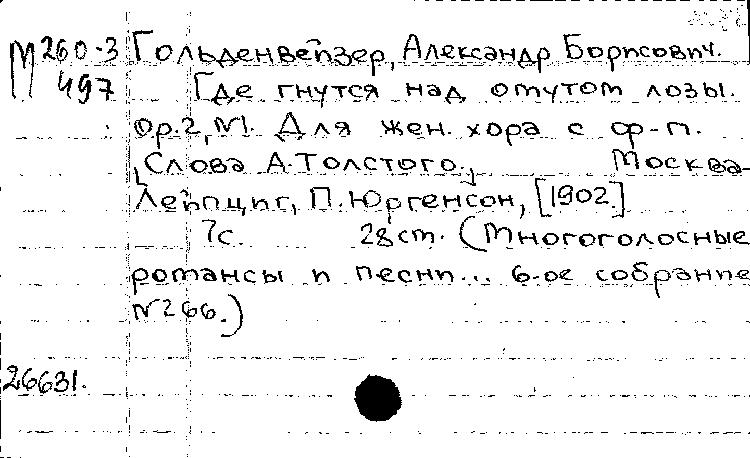 М 260-3 Гольденвейзер, Александр Борисович.
497 Где гнутся над омутом лозы.
Ор.2, №1. Для жен. хора с ф-п.
[Слова А.Толстого.] Москва-
Лейпциг, П. Юргенсон, [1902.]
7с. 28cm. (Многоголосные
романсы и песни... 6-ое собрание
№266.)
26631.